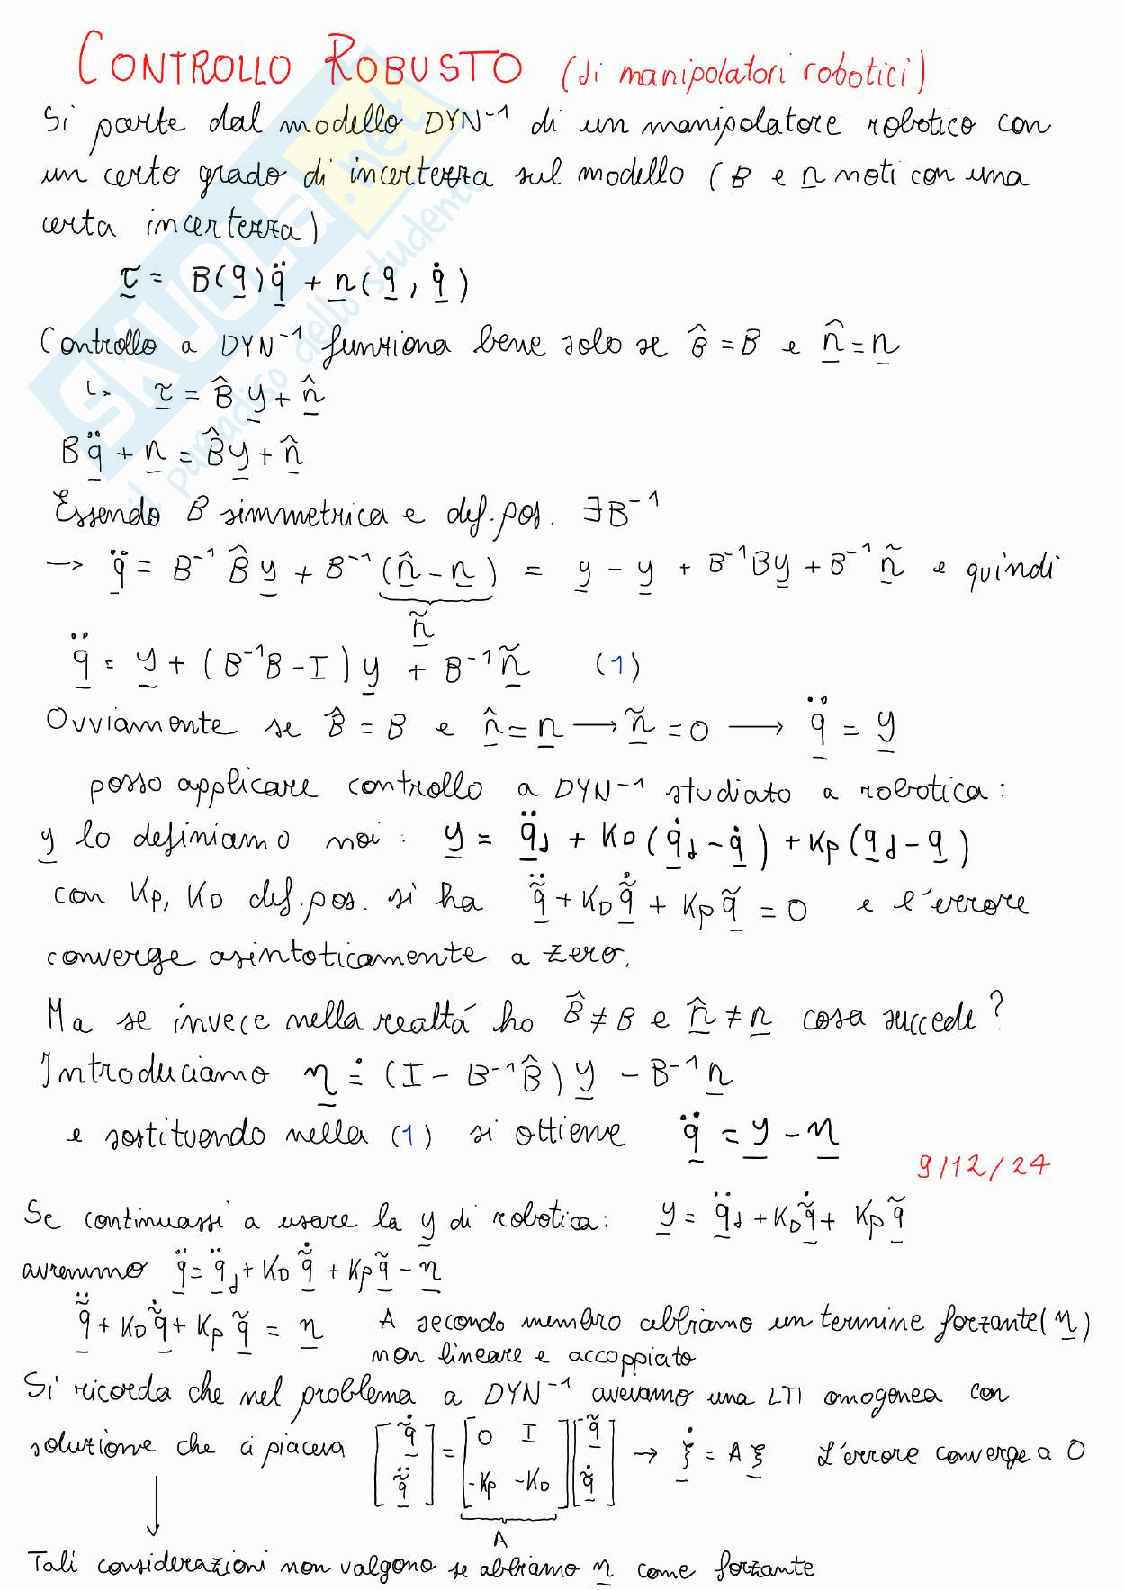 CONTROLLO ROBUSTO (di manipolatori robotici)
Si parte dal modello DYN⁻¹ di un manipolatore robotico con
un certo grado di incertezza sul modello (B e n noti con una
certa incertezza)
τ = B(q)q̈ + n(q, q̇)
Controllo a DYN⁻¹ funziona bene solo se B̂ = B e n̂ = n
↳ τ = B̂ y + n̂
B q̈ + n = B̂ y + n̂
Essendo B simmetrica e def. pos. ∃ B⁻¹
→ q̈ = B⁻¹ B̂ y + B⁻¹ (n̂ - n) = y - y + B⁻¹By + B⁻¹ ñ e quindi
ñ
q̈ = y + (B⁻¹B - I) y + B⁻¹ñ (1)
Ovviamente se B̂ = B e n̂ = n → ñ = 0 → q̈ = y
posso applicare controllo a DYN⁻¹ studiato a robotica:
y lo definiamo noi: y = q̈d + KD (q̇d - q̇) + Kp (qd - q)
con Kp, KD def. pos. si ha q̃̈ + KD q̃̇ + Kp q̃ = 0 e l'errore
converge asintoticamente a zero.
Ma se invece nella realtá ho B̂ ≠ B e n̂ ≠ n cosa succede?
Introduciamo η ≐ (I - B⁻¹B̂) y - B⁻¹ n
e sostituendo nella (1) si ottiene q̈ = y - η
9/12/24
Se continuassi a usare la y di robotica: y = q̈d + KD q̃̇ + Kp q̃
avremmo q̈ = q̈d + KD q̃̇ + Kp q̃ - η
q̃̈ + KD q̃̇ + Kp q̃ = η A secondo membro abbiamo un termine forzante (η)
non lineare e accoppiato
Si ricorda che nel problema a DYN⁻¹ avevamo una LTI omogenea con
soluzione che ci piaceva [q̃̇ q̃̈] = [0 I -Kp -KD] [q̃ q̃̇] → ξ̇ = A ξ L'errore converge a 0
A
Tali considerazioni non valgono se abbiamo η come forzante
SKUOLA.net
il paradiso dello studente